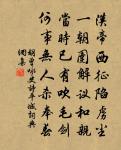 漢帝西征陷虜塵
一朝圍解議和親
當時已有吹毛劍
何事無人殺奉春
胡曾咏史詩平城詞典
網集